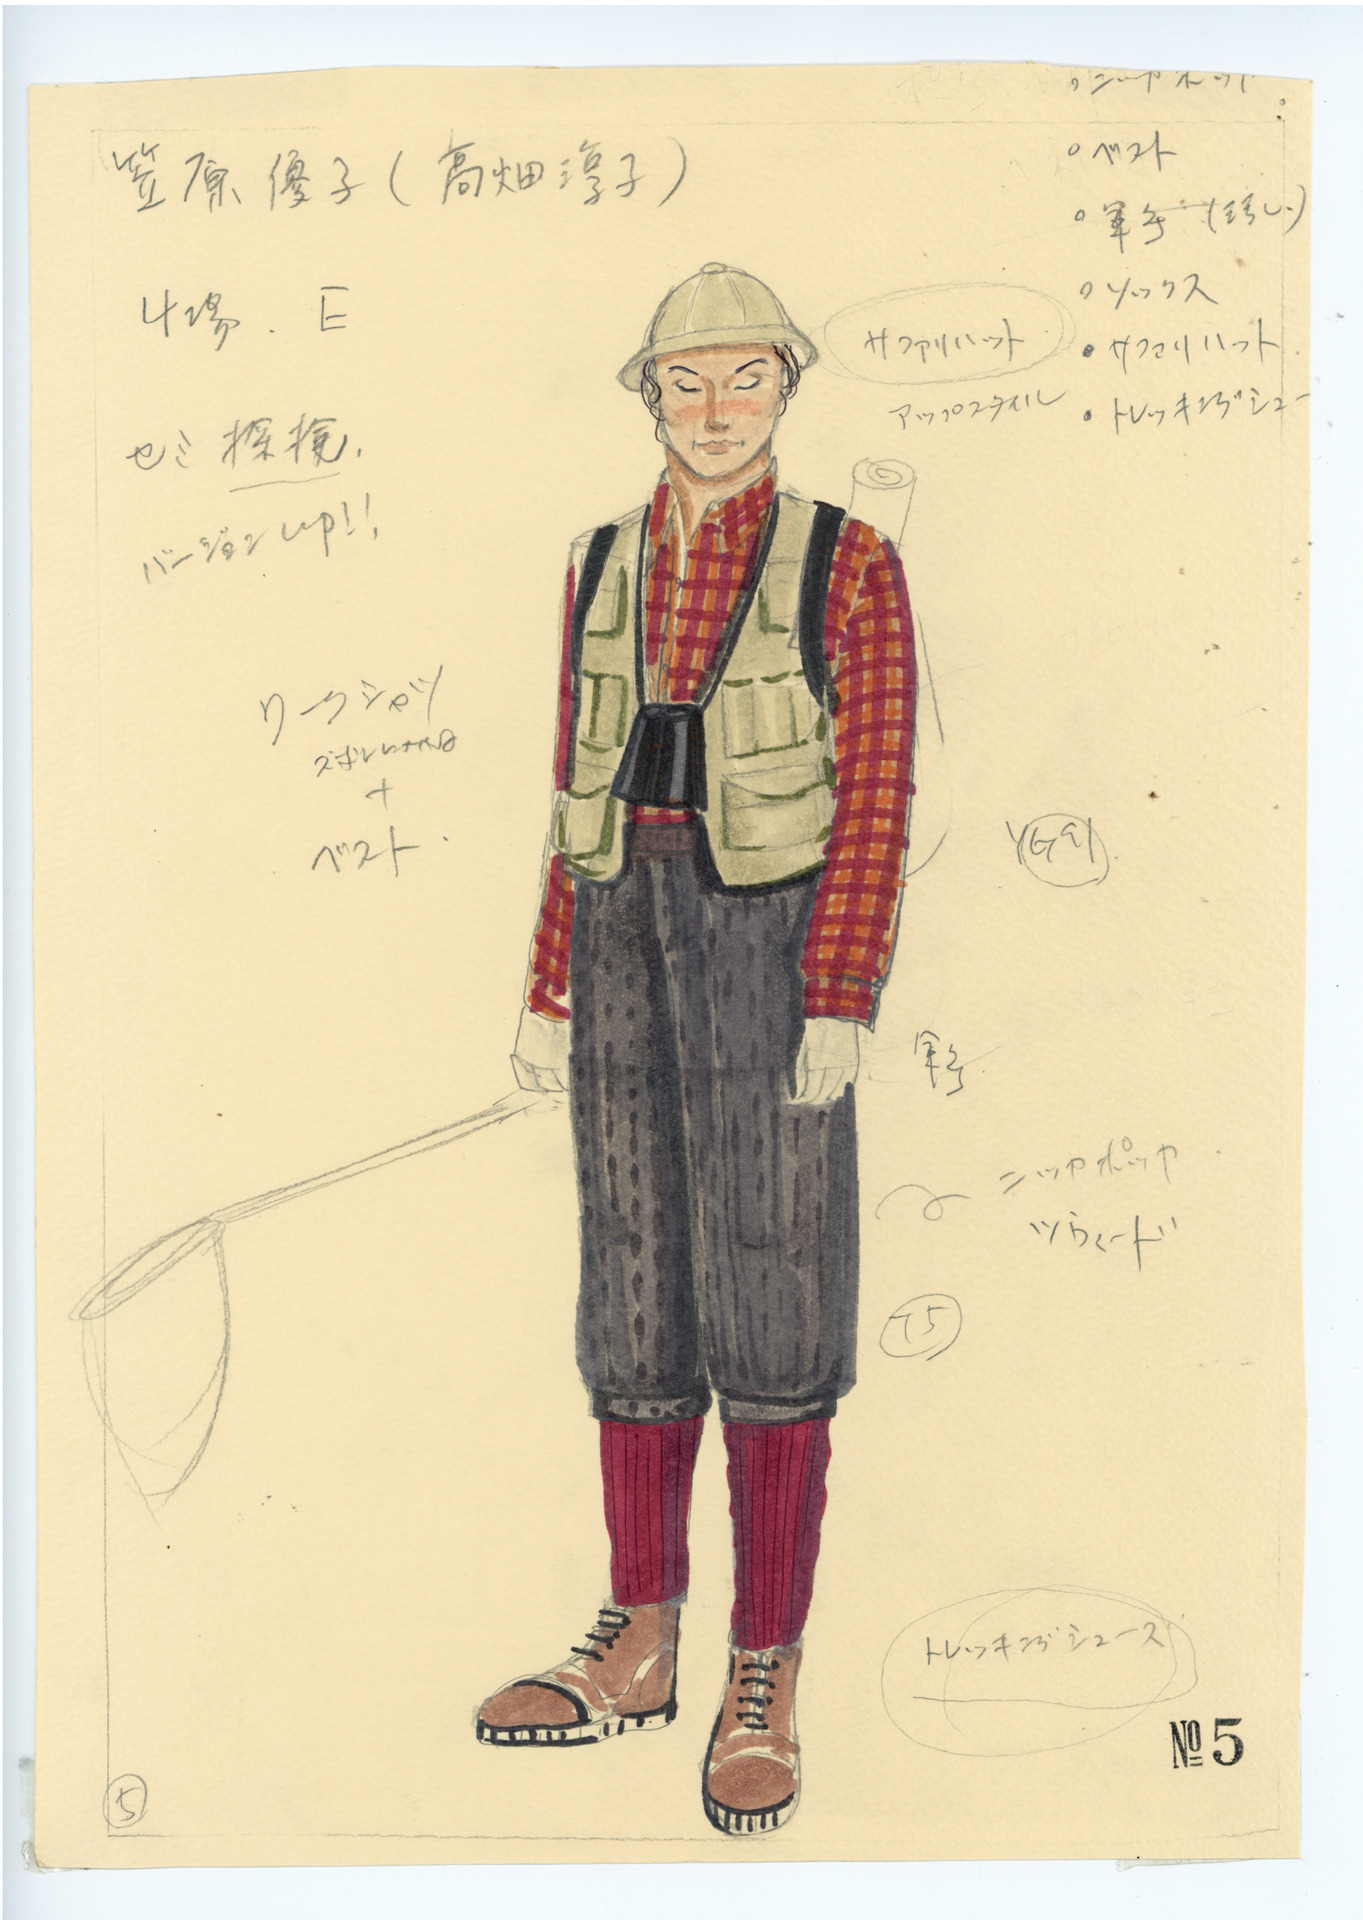 笠原優子(高畑淳子)
4場. E
セミ探検.
バージョンup!!
ワークシャツ
+
ベスト.
ニッカポッカ
ベスト
軍手
ソックス
サファリハット
トレッキングシュー
サファリハット
アップスタイル
YG91
軍手
ニッカポッカ
ツウィード
T5
トレッキングシューズ
№5
5